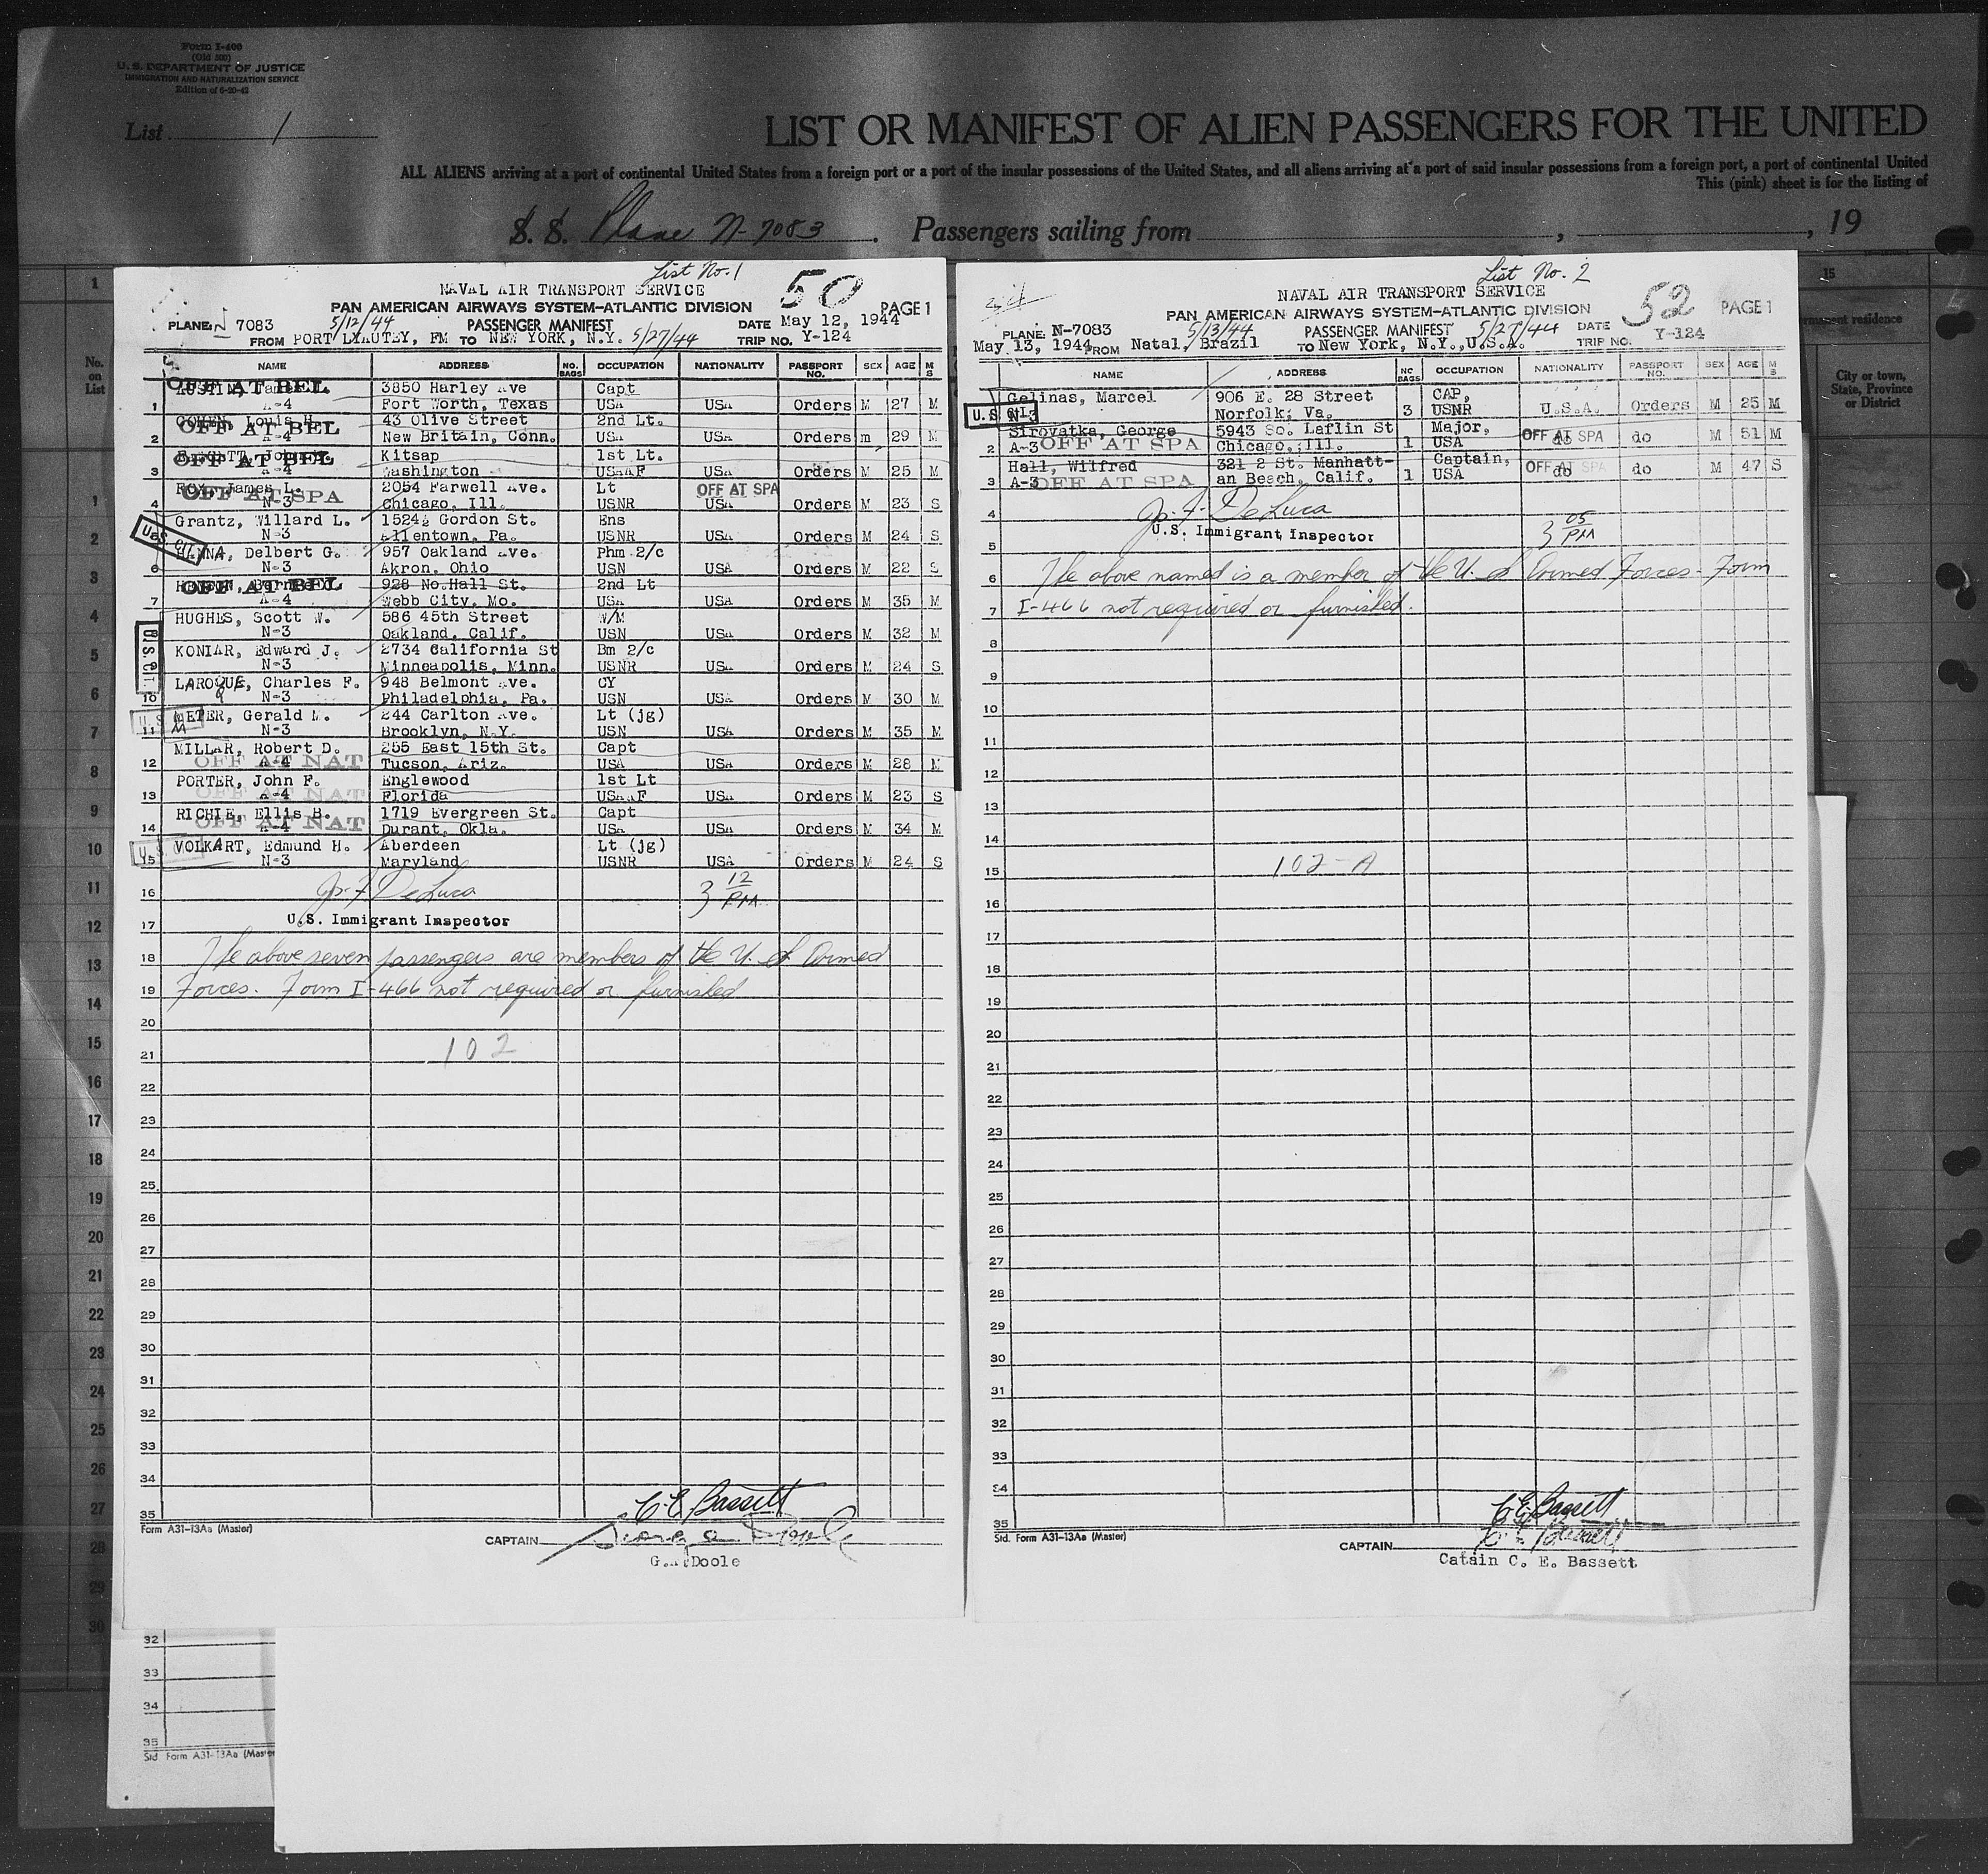 Form I-400
(Old 500)
U. S. DEPARTMENT OF JUSTICE
IMMIGRATION AND NATURALIZATION SERVICE
Edition of 6-20-42
List 1
LIST OR MANIFEST OF ALIEN PASSENGERS FOR THE UNITED
ALL ALIENS arriving at a port of continental United States from a foreign port or a port of the insular possessions of the United States, and all aliens arriving at a port of said insular possessions from a foreign port, a port of continental United
This (pink) sheet is for the listing of
S. S. Plane N-7083. Passengers sailing from , , 19
List No. 1
NAVAL AIR TRANSPORT SERVICE 50
PAN AMERICAN AIRWAYS SYSTEM-ATLANTIC DIVISION PAGE 1
PLANE N 7083 5/12/44 PASSENGER MANIFEST DATE May 12, 1944
FROM PORT LYAUTEY, FM TO NEW YORK, N.Y. 5/27/44 TRIP NO. Y-124
NAME ADDRESS NO. BAGS OCCUPATION NATIONALITY PASSPORT NO. SEX AGE M S
OFF AT BEL 3850 Harley Ave Capt
1 A-4 Fort Worth, Texas USA USA Orders M 27 M
COHEN, Louis H. 43 Olive Street 2nd Lt.
OFF AT BEL
2 A-4 New Britain, Conn. USA USA Orders m 29 M
OFF AT BEL Kitsap 1st Lt.
3 A-4 Washington USAAF USA Orders M 25 M
James L. 2054 Farwell Ave. Lt OFF AT SPA
OFF AT SPA
4 N-3 Chicago, Ill. USNR USA Orders M 23 S
Grantz, Willard L. 1524½ Gordon St. Ens
U.S. CIT. N-3 Allentown, Pa. USNR USA Orders M 24 S
Delbert G. 957 Oakland Ave. Phm 2/c
6 N-3 Akron, Ohio USN USA Orders M 22 S
OFF AT BEL 928 No. Hall St. 2nd Lt
7 A-4 Webb City, Mo. USA USA Orders M 35 M
HUGHES, Scott W. 586 45th Street W/M
N-3 Oakland, Calif. USN USA Orders M 32 M
U.S. CIT.
KONIAR, Edward J. 2734 California St Bm 2/c
N-3 Minneapolis, Minn. USNR USA Orders M 24 S
LAROQUE, Charles F. 948 Belmont Ave. CY
10 N-3 Philadelphia, Pa. USN USA Orders M 30 M
METER, Gerald M. 244 Carlton Ave. Lt (jg)
11 N-3 Brooklyn, N.Y. USN USA Orders M 35 M
MILLAR, Robert D. 255 East 15th St. Capt
OFF AT NAT
12 A-4 Tucson, Ariz. USA USA Orders M 28 M
PORTER, John F. Englewood 1st Lt
OFF AT NAT
13 A-4 Florida USAAF USA Orders M 23 S
RICHIE, Ellis B. 1719 Evergreen St. Capt
OFF AT NAT
14 A-4 Durant, Okla. USA USA Orders M 34 M
VOLKART, Edmund H. Aberdeen Lt (jg)
15 N-3 Maryland USNR USA Orders M 24 S
16 Jos. F. DeLuca 3 12 PM
17 U.S. Immigrant Inspector
18 The above seven passengers are members of the U. S. Armed
19 Forces. Form I-466 not required or furnished
20
21 102
22
23
24
25
26
27
28
29
30
31
32
33
34
35 C. E. Bassett
Form A31-13Aa (Master)
CAPTAIN
G.A. Doole
List No. 2
NAVAL AIR TRANSPORT SERVICE 52
PAN AMERICAN AIRWAYS SYSTEM-ATLANTIC DIVISION PAGE 1
PLANE N-7083 5/13/44 PASSENGER MANIFEST 5/27/44 DATE
May 13, 1944 FROM Natal, Brazil TO New York, N.Y.,U.S.A. TRIP NO. Y-124
NAME ADDRESS NO BAGS OCCUPATION NATIONALITY PASSPORT NO. SEX AGE M S
Gelinas, Marcel 906 E. 28 Street CAP,
U.S. CIT. N-3 Norfolk, Va. 3 USNR U.S.A. Orders M 25 M
Sirovatka, George 5943 So. Laflin St Major,
2 A-3 OFF AT SPA Chicago, Ill. 1 USA OFF AT SPA do do M 51 M
Hall, Wilfred 321 2 St. Manhatt- Captain,
3 A-3 OFF AT SPA an Beach, Calif. 1 USA OFF AT SPA do do M 47 S
4 Jos. F. DeLuca
5 U.S. Immigrant Inspector 3 05 PM
6 The above named is a member of the U. S. Armed Forces - Form
7 I-466 not required or furnished.
8
9
10
11
12
13
14
15 102-A
16
17
18
19
20
21
22
23
24
25
26
27
28
29
30
31
32
33
34
35 C. E. Bassett
Std. Form A31-13Aa (Master)
CAPTAIN C. E. Bassett
Catain C. E. Bassett
No. on List
1
1
2
3
4
5
6
7
8
9
10
11
12
13
14
15
16
17
18
19
20
21
22
23
24
25
26
27
28
29
30
15
permanent residence
City or town, State, Province or District
32
33
34
35
Std. Form A31-13Aa (Master